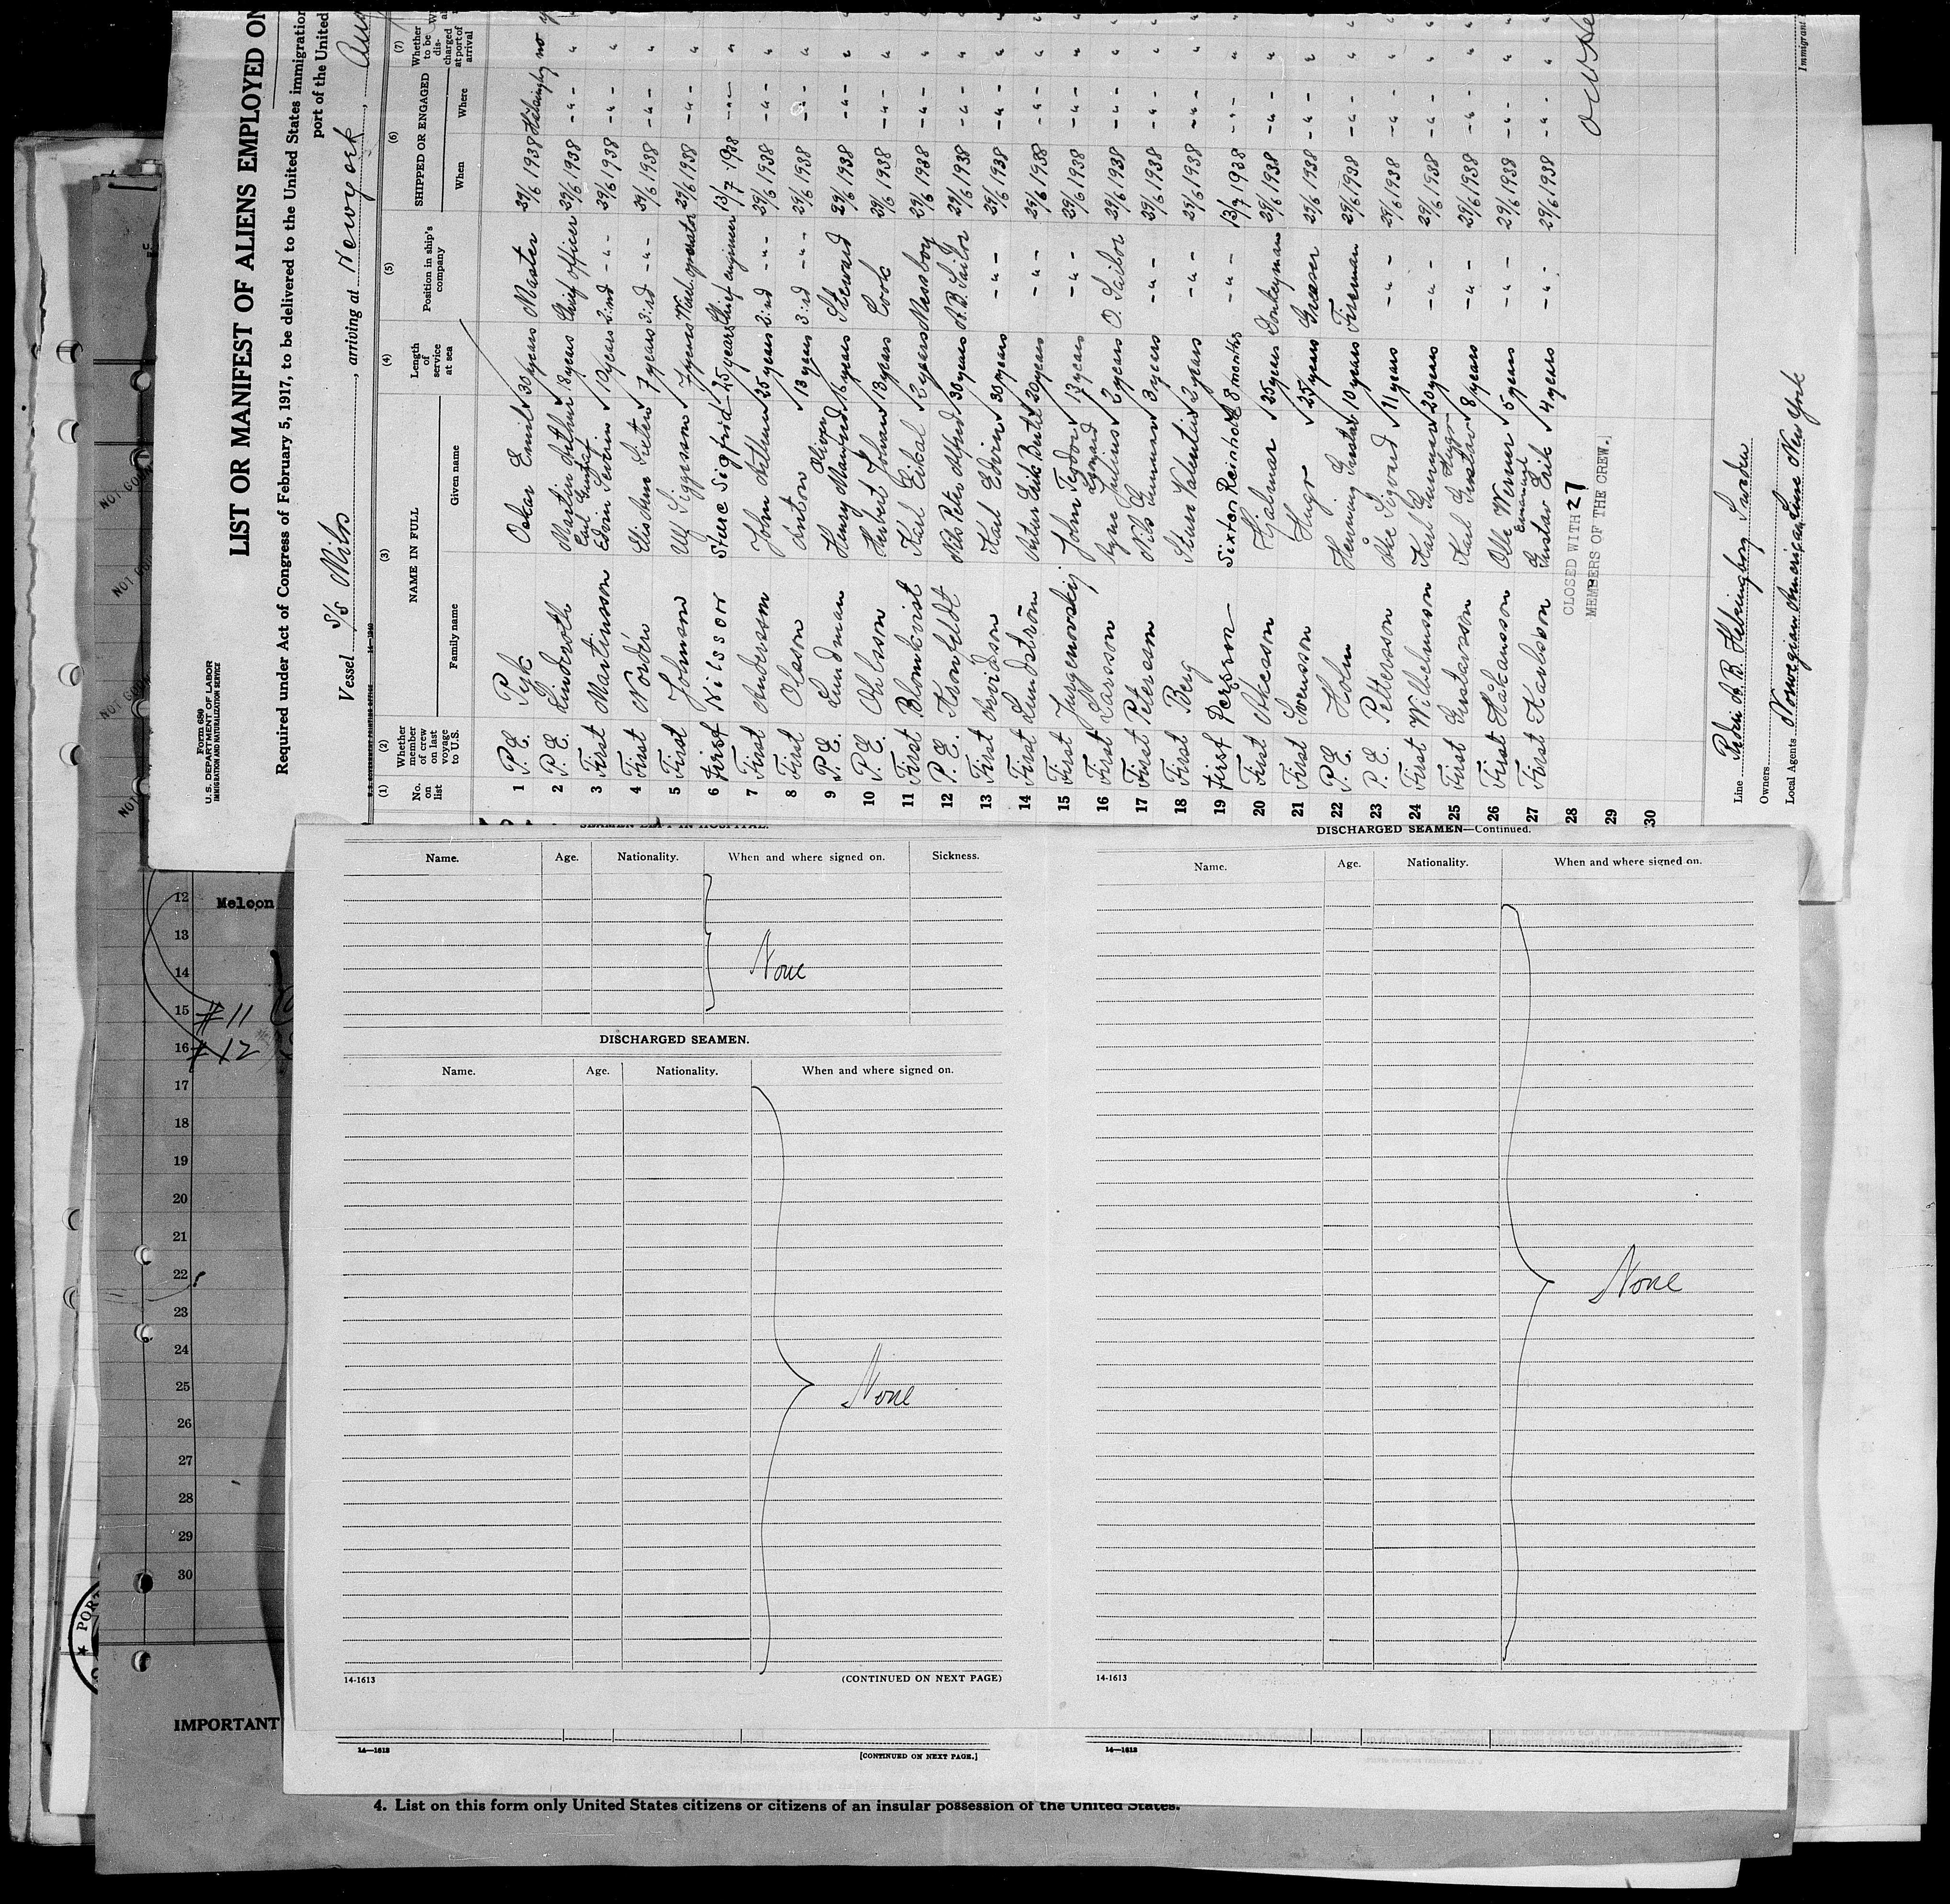 Form 680
U.S. DEPARTMENT OF LABOR
IMMIGRATION AND NATURALIZATION SERVICE
LIST OR MANIFEST OF ALIENS EMPLOYED ON
Required under Act of Congress of February 5, 1917, to be delivered to the United States immigration
port of the United
Vessel S/S Milos, arriving at Newyork,
(1) (2) (3) (4) (5) (6) (7)
No. on list
Whether member of crew on last voyage to U.S.
NAME IN FULL
Family name Given name
Length of service at sea
Position in ship's company
SHIPPED OR ENGAGED
When Where
Whether to be discharged at port of arrival
1 P.E. Pyk Oskar Emil 30 years Master 29/6 1938 no
2 P.E. Linderoth Martin Arthur 18 years Chief officer 29/6 1938 - " - "
3 First Martinsson Edvin Severin 10 years 2:nd - " - 29/6 1938 - " - "
4 First Nordén 7 years 3:rd - " - 29/6 1938 - " - "
5 First Johnson Ulf Siggesson 7 years operator 29/6 1938 - " - "
6 First Nilsson Sture Sigfrid 25 years Chief engineer 13/7 1938 - " - "
7 First Andersson John 25 years 2:nd - " - 29/6 1938 - " - "
8 First Olsson Anton 13 years 3:rd - " - 29/6 1938 - " - "
9 P.E. Lundman Henry Manfred 16 years Steward 29/6 1938 - " - "
10 P.E. Ohlsson Herbert Johan 13 years Cook 29/6 1938 - " - "
11 First Blomkvist Karl 2 years Messboy 29/6 1938 - " - "
12 P.E. Kronfeldt Nils Peter Alfred 30 years A.B. Sailor 29/6 1938 - " - "
13 First Arvidsson Karl Edvin 30 years - " - 29/6 1938 - " - "
14 First Lundström Artur Erik Bertil 20 years - " - 29/6 1938 - " - "
15 First John Teodor 13 years - " - 29/6 1938 - " - "
16 First Larsson Julius 2 years O. Sailor 29/6 1938 - " - "
17 First Petersson Nils Gunnar 3 years - " - 29/6 1938 - " - "
18 First Berg Sture Valentin 2 years - " - 29/6 1938 - " - "
19 First Persson Sixten Reinhold 8 months - " - 13/7 1938 - " - "
20 First Åkesson Hjalmar 25 years Donkeyman 29/6 1938 - " - "
21 First Svensson Hugo 25 years Greaser 29/6 1938 - " - "
22 P.E. Holm Henning Gustav 10 years Fireman 29/6 1938 - " - "
23 P.E. Petterson Åke Sigvard 11 years - " - 29/6 1938 - " - "
24 First Wilhelmsson Karl Gunnar 20 years - " - 29/6 1938 - " - "
25 First Gustavsson Karl Gustav Hugo 8 years - " - 29/6 1938 - " - "
26 First Håkansson Olle Werner 5 years - " - 29/6 1938 - " - "
27 First Karlsson Gustav Erik Emanuel 4 years - " - 29/6 1938 - " - "
28
29
30
CLOSED WITH 27
MEMBERS OF THE CREW.
Line Rederi A.B. Helsingborg Sweden
Owners
Local Agents Norwegian American Line New York
Immigrant
SEAMEN LEFT IN HOSPITAL.
Name. Age. Nationality. When and where signed on. Sickness.
None
DISCHARGED SEAMEN.
Name. Age. Nationality. When and where signed on.
None
14-1613 (CONTINUED ON NEXT PAGE)
DISCHARGED SEAMEN—Continued.
Name. Age. Nationality. When and where signed on.
None
14-1613
12 Meloon
13
14
15 #11
16 #12
17
18
19
20
21
22
23
24
25
26
27
28
29
30
★ POR
IMPORTANT
14—1613 [CONTINUED ON NEXT PAGE.]
14—1613
4. List on this form only United States citizens or citizens of an insular possession of the United States.